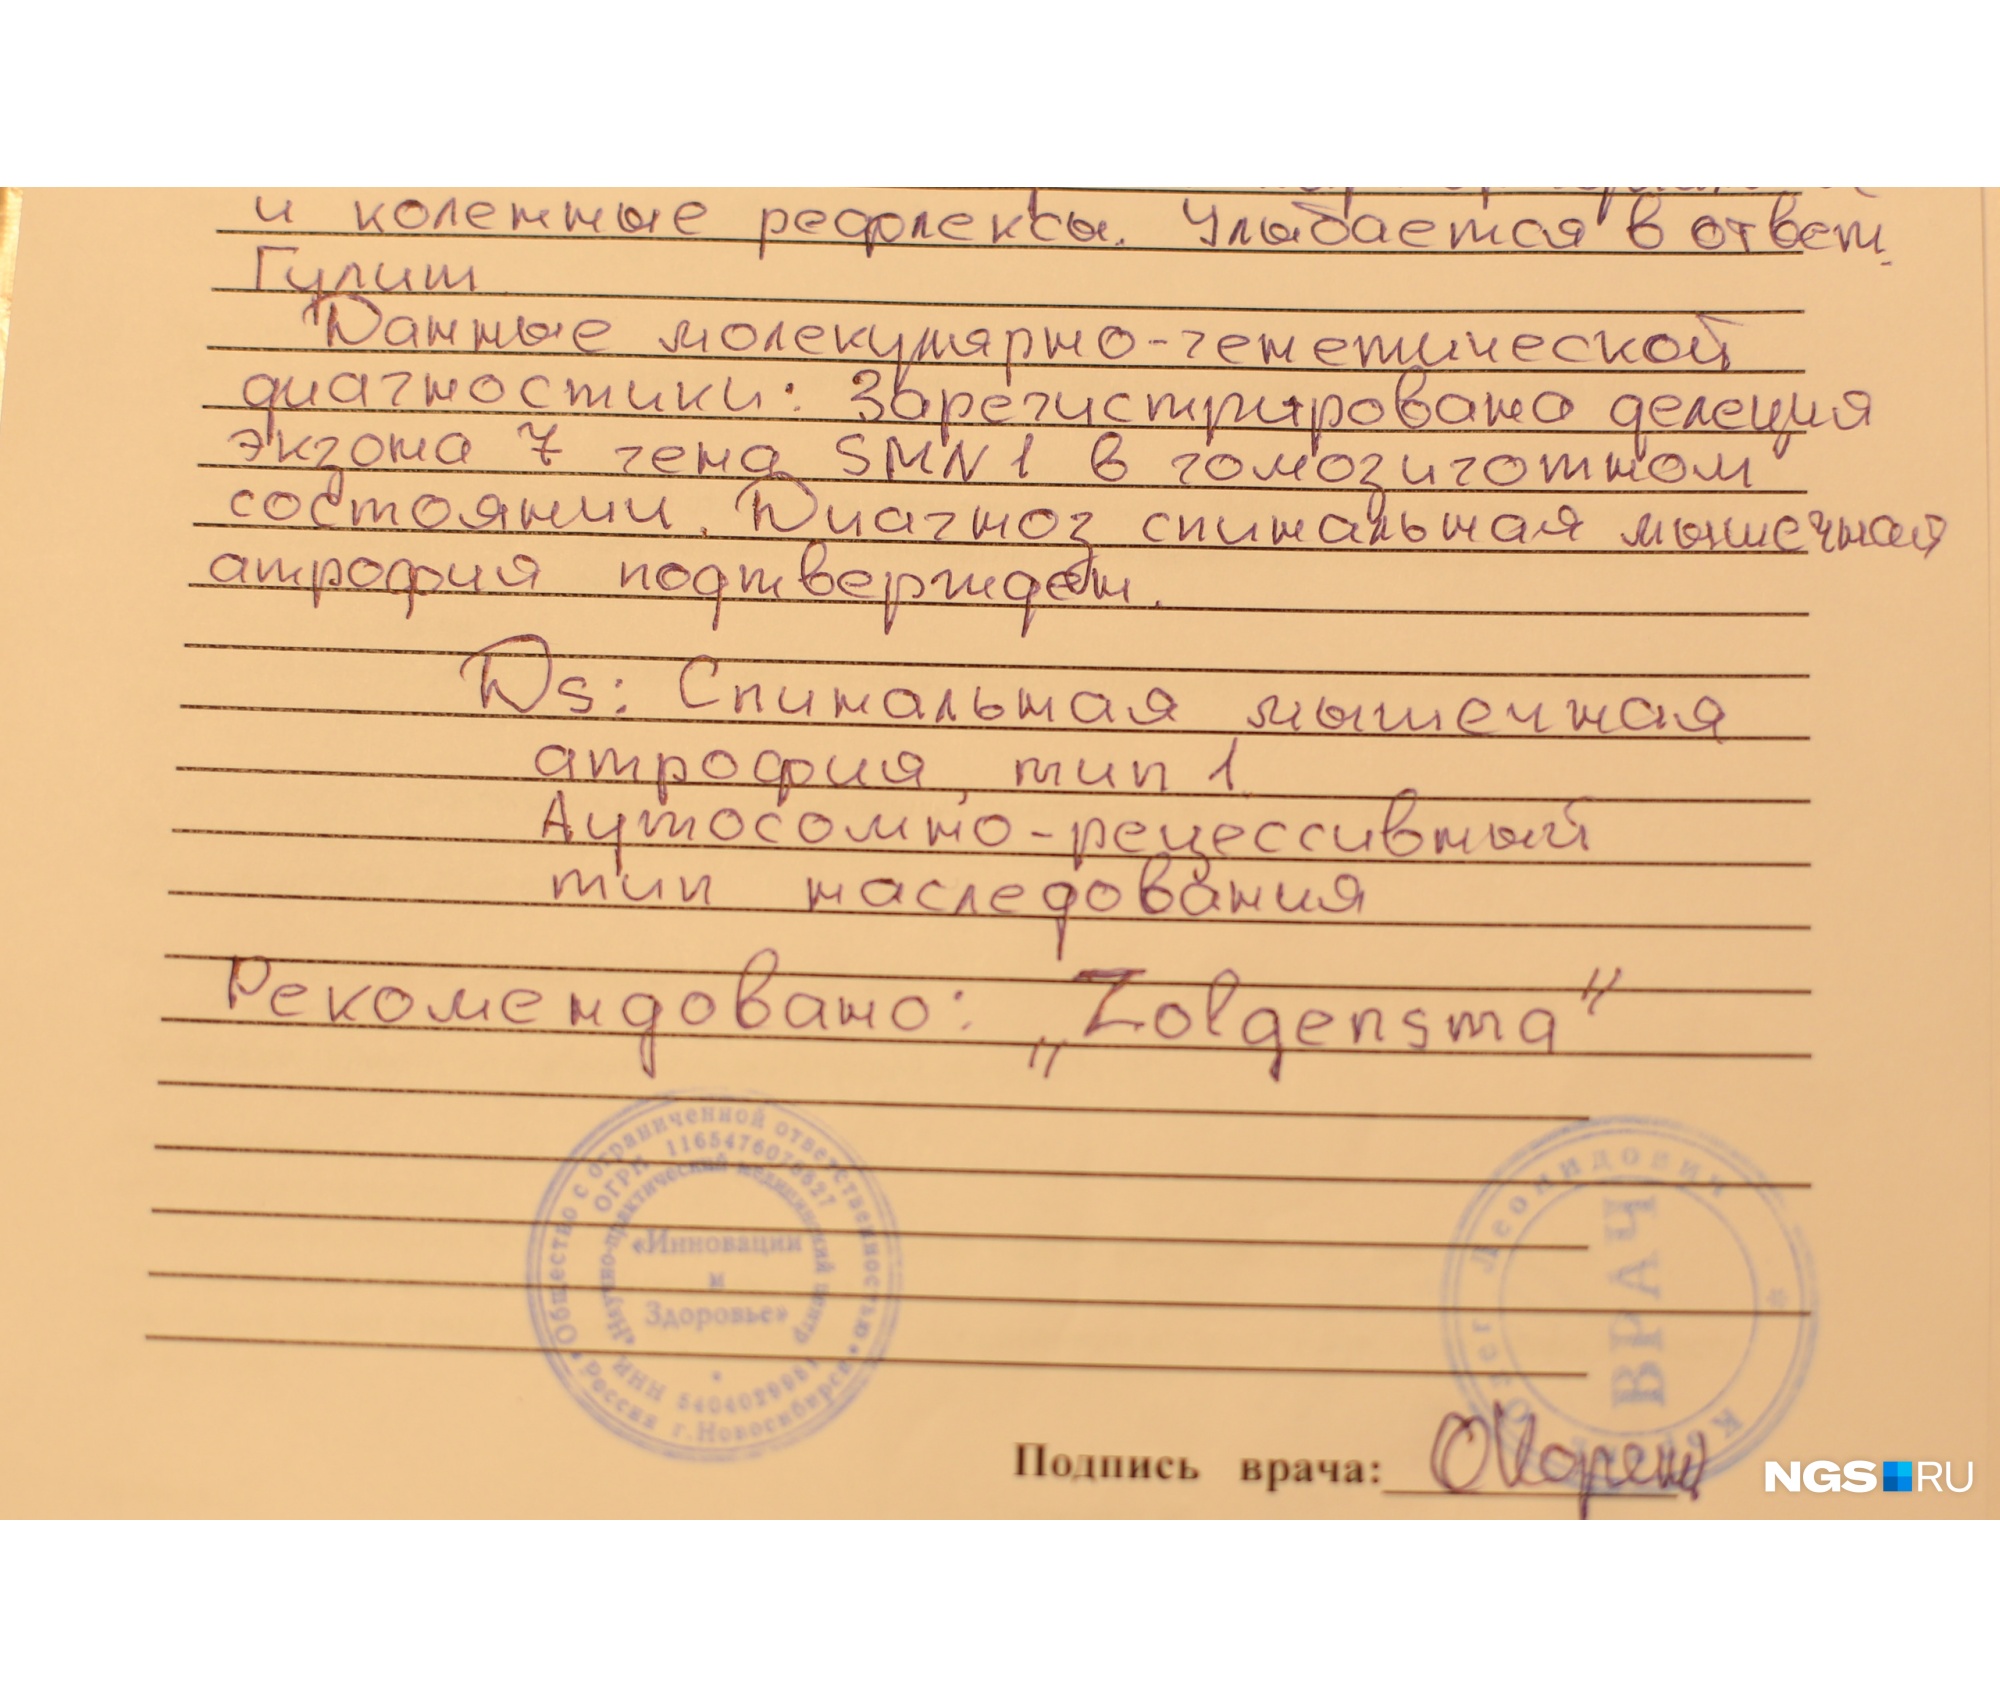 и коленные рефлексы. Улыбается в ответ.
Гулит
Данные молекулярно-генетической
диагностики: Зарегистрирована делеция
экзона 7 гена SMN1 в гомозиготном
состоянии. Диагноз спинальная мышечная
атрофия подтвержден.
Ds: Спинальная мышечная
атрофия, тип 1.
Аутосомно-рецессивный
тип наследования
Рекомендовано: „Zolgensma"
Общество с ограниченной ответственностью
ОГРН 1165476075627
«Научно-практический медицинский центр
«Инновации
и
Здоровье»
ИНН 5404029981
Россия г. Новосибирск
Леонидович
ВРАЧ
Подпись врача:
NGS RU